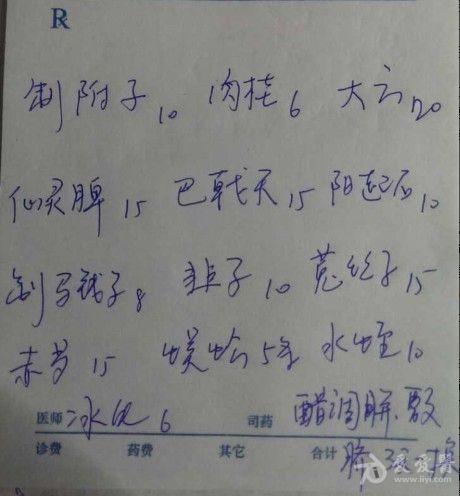 R
制附子10 肉桂6 大云20
仙灵脾15 巴戟天15 阳起石10
制马钱子8 韭子10 菟丝子15
赤芍15 蜈蚣5条 水蛭10
医师 冰片6 司药 醋调饼、敷
诊费 药费 其它 合计 脐 一换
爱爱医
www.iiyi.com